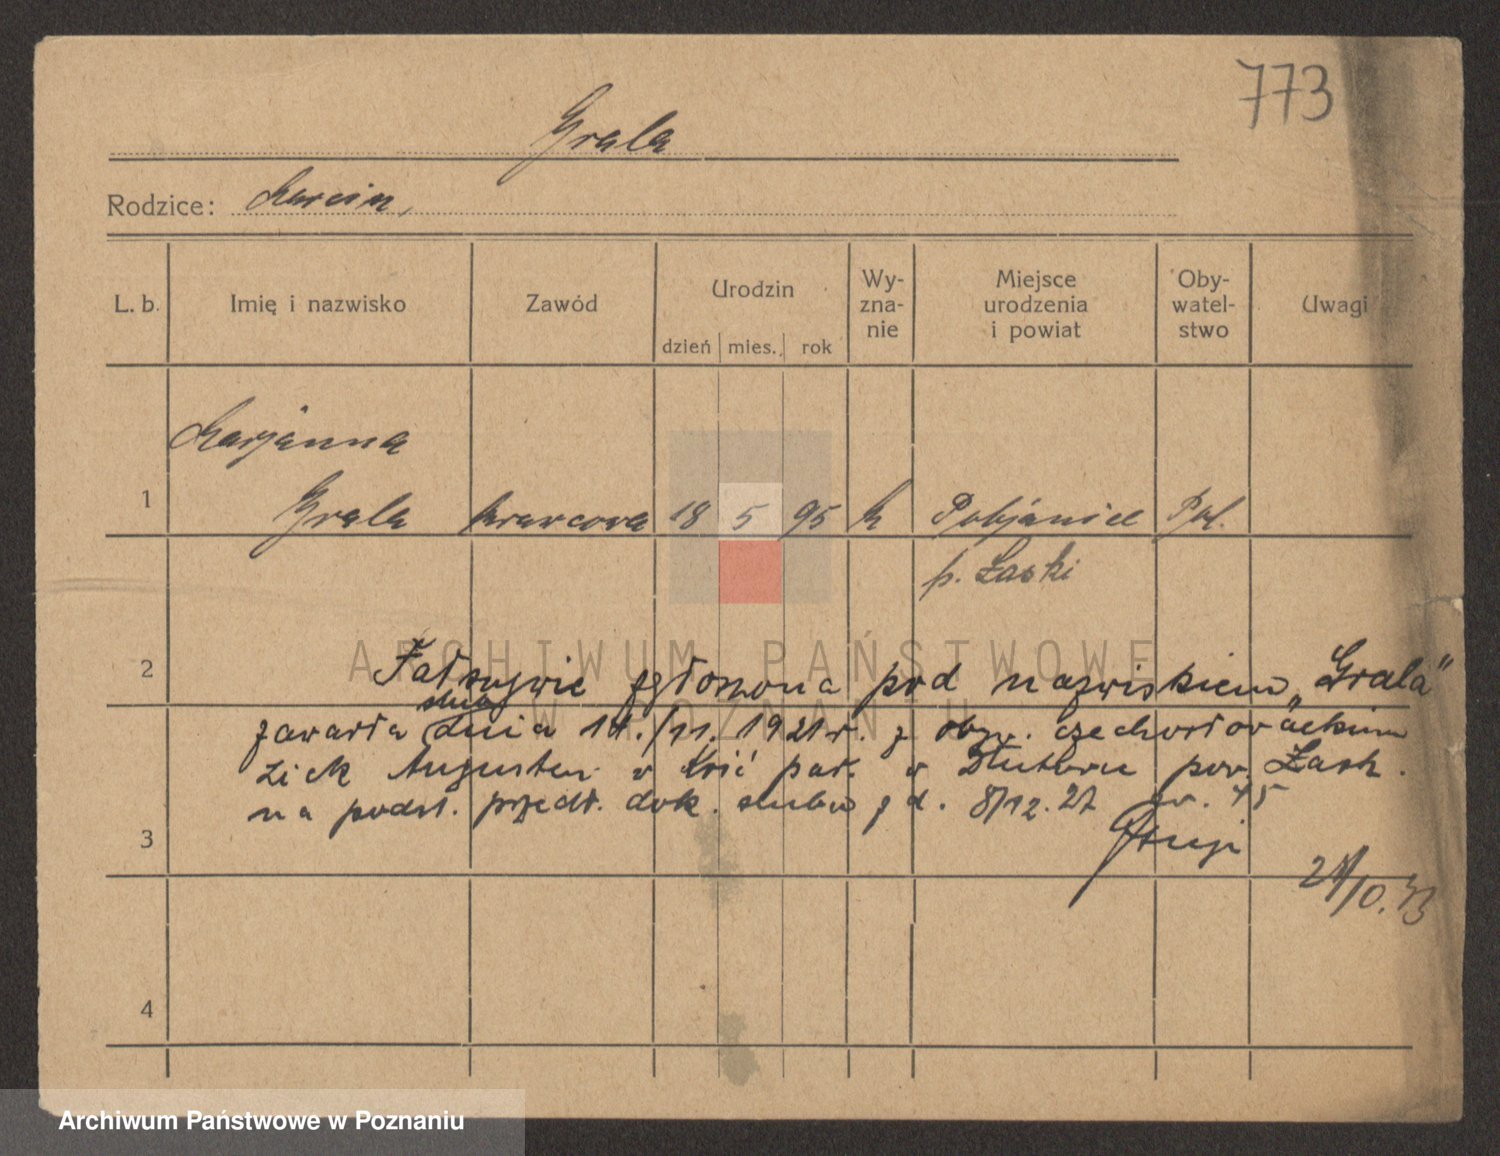 773
Grala
Rodzice: Marcin,
L. b. Imię i nazwisko Zawód Urodzin dzień mies. rok Wy- zna- nie Miejsce urodzenia i powiat Oby- watel- stwo Uwagi
Marjanna
1 Grala krawcowa 18 5 95 k Pabjanice Pol.
p. Łaski
ARCHIWUM PAŃSTWOWE
2 Fałszywie zgłoszona pod nazwiskiem „Grala"
W POZNANIU
ślub
zawarła dnia 11. 1921 r. z obyw. czechosłowackim
Zick Augustem w par. w Dłutowie pow. Łask.
na podst. przedł. dok. ślubu z d. 8/12.27 nr. 45
3
10.33
4
Archiwum Państwowe w Poznaniu